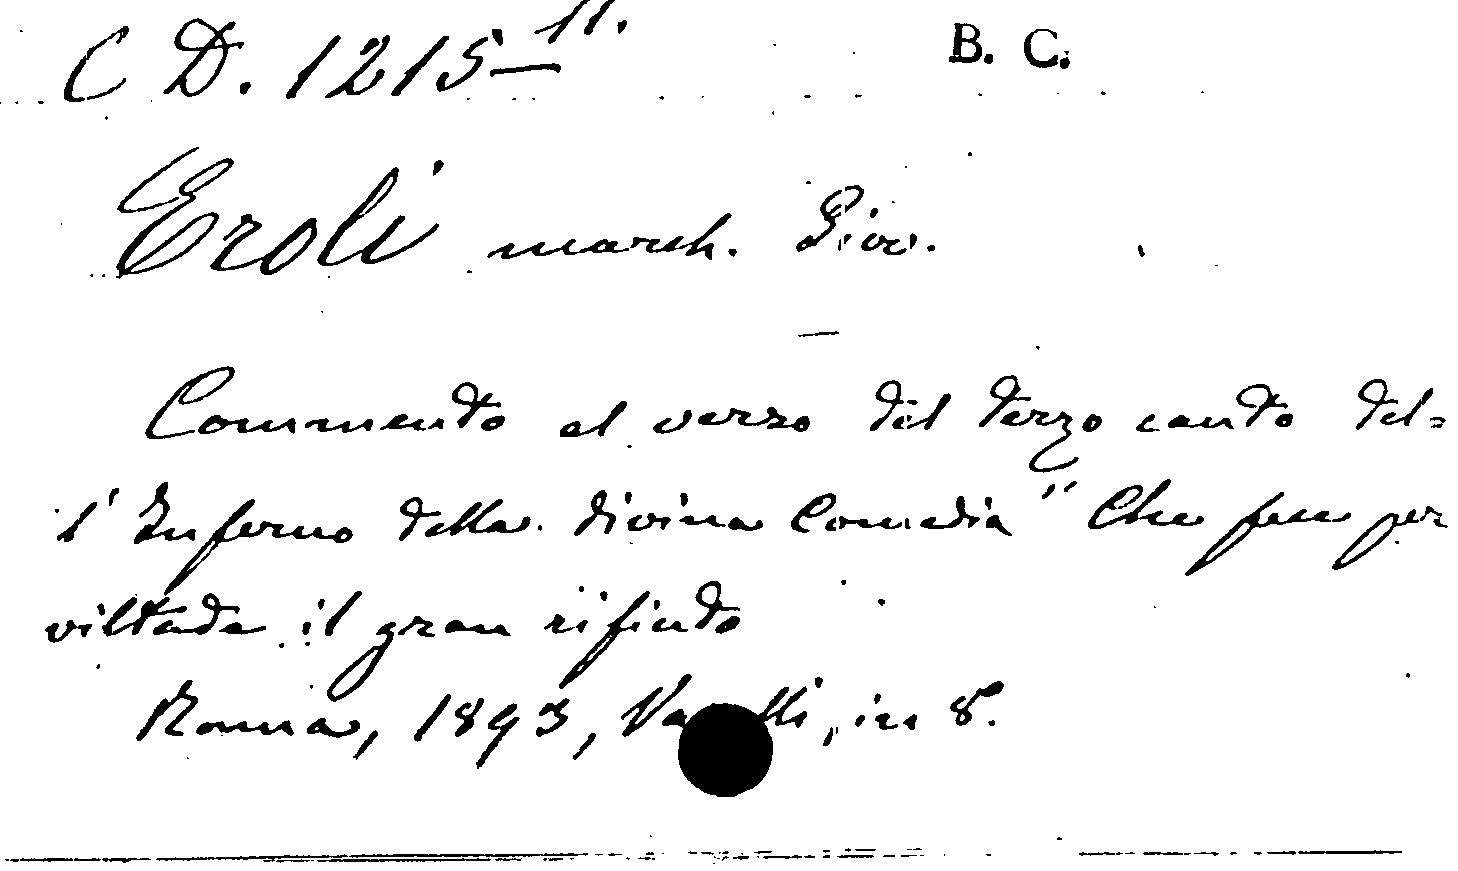 C D. 1215 11. B. C.
Eroli march. Giov.
Commento al verso del terzo canto del=
l'Inferno della divina Comedia " Che fece per
viltade il gran rifiuto
Roma, 1893, in 8°.